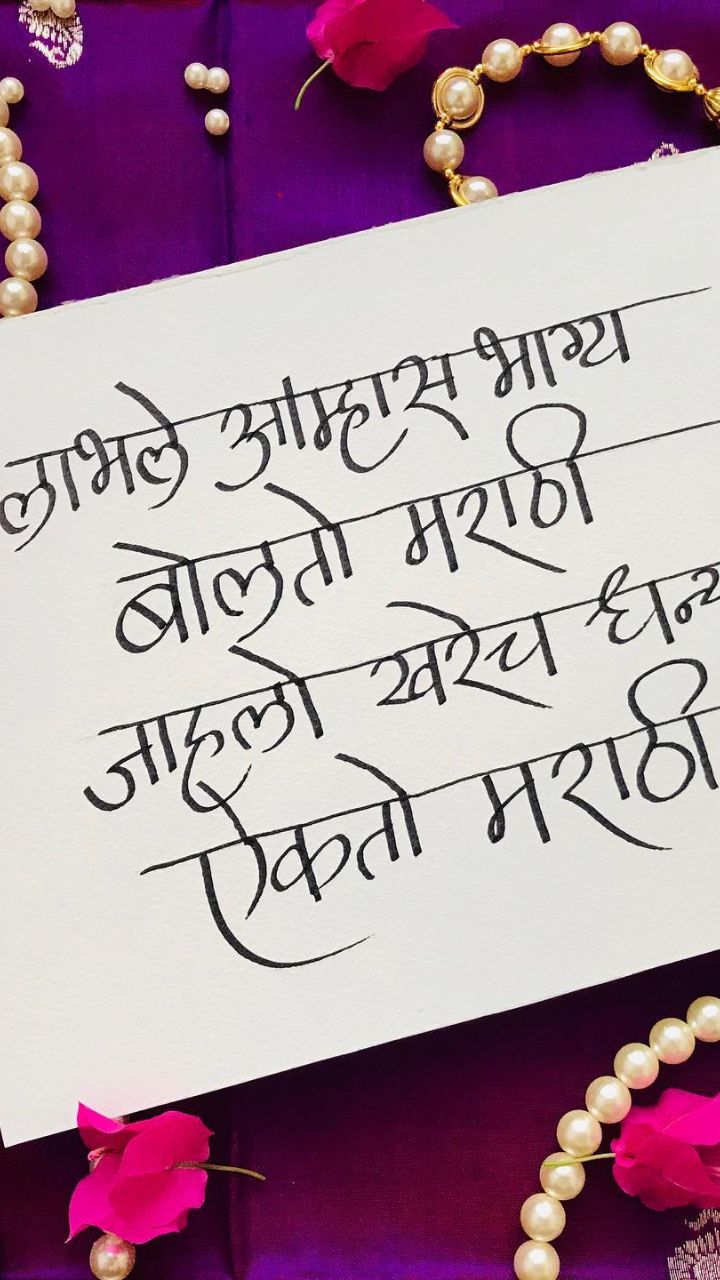 लाभले आम्हास भाग्य
बोलतो मराठी
जाहलो खरेच धन्य
ऐकतो मराठी